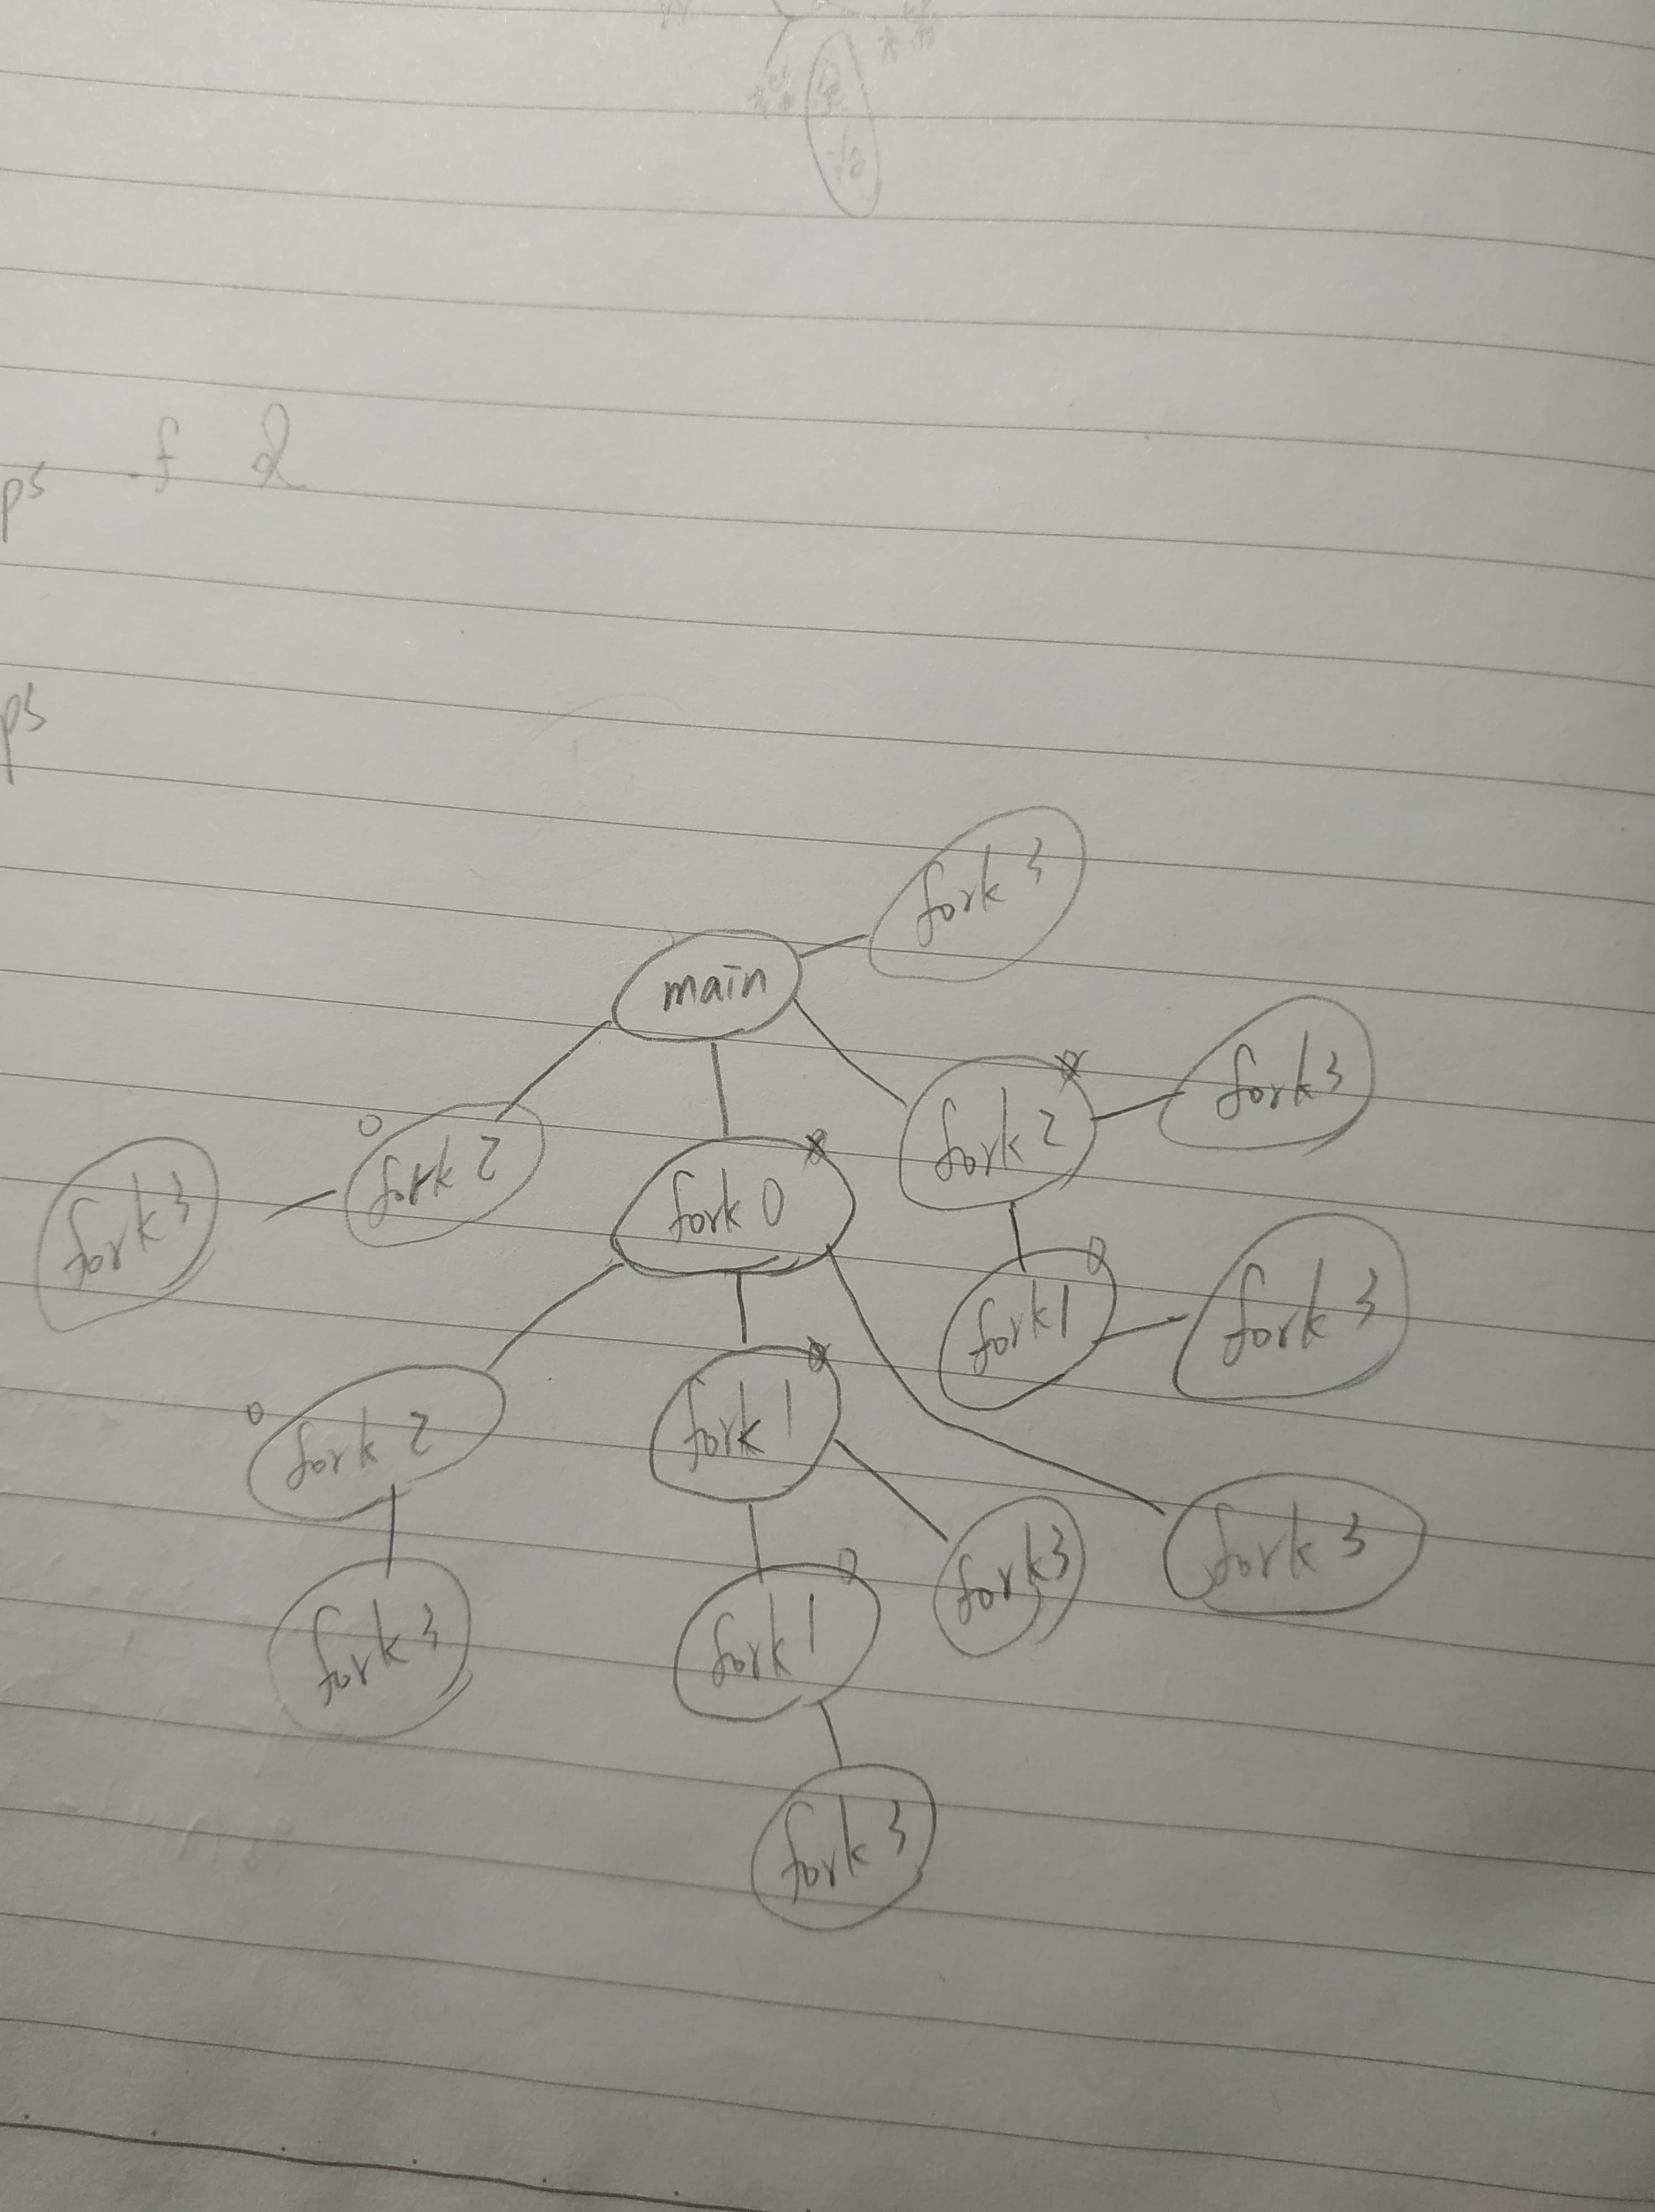 ps -f
ps
fork 3
main
fork 3
fork 2
fork 2
fork 3
fork 0
fork 1
fork 3
fork 2
fork 1
fork 3
fork 3
fork 3
fork 1
fork 3